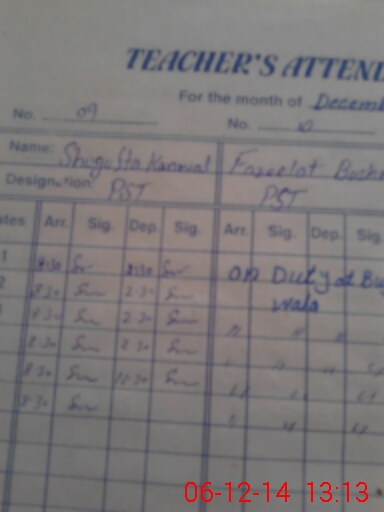 TEACHER'S ATTEND
For the month of Decemb
No. 09
No. 10
Name: Shagufta Kanwal Fazeelat Bush
Designation: PST PST
ates Arr. Sig. Dep. Sig. Arr. Sig. Dep. Sig
1 8:30 2:30 on Duty at Bu
2 8:30 2:30 wala
8:30 2:30 " " "
8:30 2:30 " " "
8:30 12:30 " " "
8:30 " " "
06-12-14 13:13